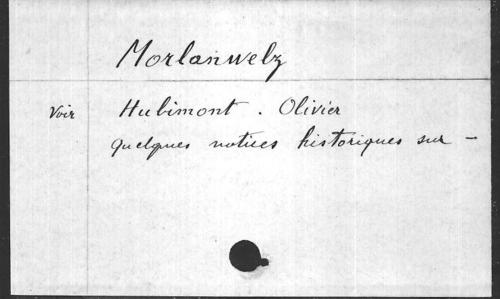 Morlanwelz
Voir Hubimont. Olivier
quelques notices historiques sur —